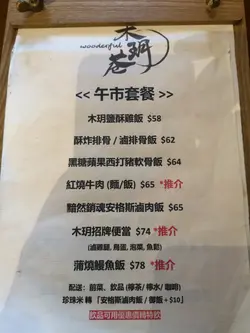 木玥巷
wooderful
<< 午市套餐 >>
木玥鹽酥雞飯 $58
酥炸排骨 / 滷排骨飯 $62
黑糖蘋果西打豬軟骨飯 $64
紅燒牛肉 (麵/飯) $65 *推介
黯然銷魂安格斯滷肉飯 $65
木玥招牌便當 $74 *推介
(滷雞腿, 鳥蛋, 泡菜, 魚鬆)
蒲燒鰻魚飯 $78 *推介
配送：前菜、飲品 (檸茶/ 檸水/ 咖啡)
珍珠米 轉「安格斯滷肉飯 / 御飯 +$10」
飲品可用優惠價轉特飲